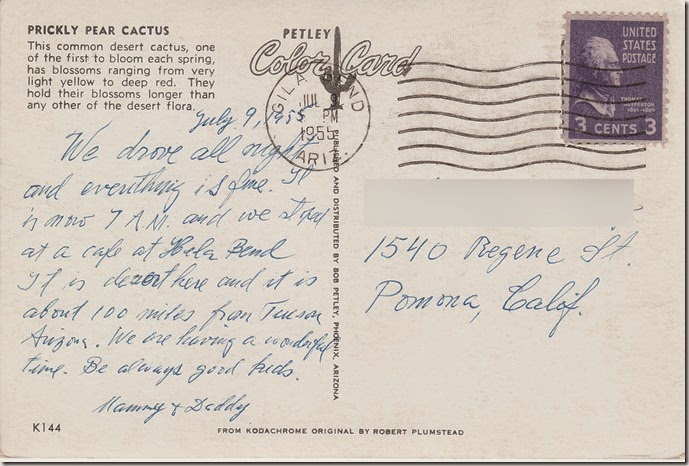 PRICKLY PEAR CACTUS
This common desert cactus, one
of the first to bloom each spring,
has blossoms ranging from very
light yellow to deep red. They
hold their blossoms longer than
any other of the desert flora.
July 9, 1955
We drove all night
and everything is fine. It
is now 7 A.M. and we stopped
at a cafe at Hila Bend
It is desert here and it is
about 100 miles from Tucson
Arizona. We are having a wonderful
time. Be always good kids.
Mammy & Daddy
K144
PETLEY
Color Card
GILA BEND
JUL 9
PM
1955
ARIZ
PUBLISHED AND DISTRIBUTED BY BOB PETLEY, PHOENIX, ARIZONA
UNITED
STATES
POSTAGE
THOMAS
JEFFERSON
3 CENTS 3
1540 Regene St.
Pomona, Calif.
FROM KODACHROME ORIGINAL BY ROBERT PLUMSTEAD